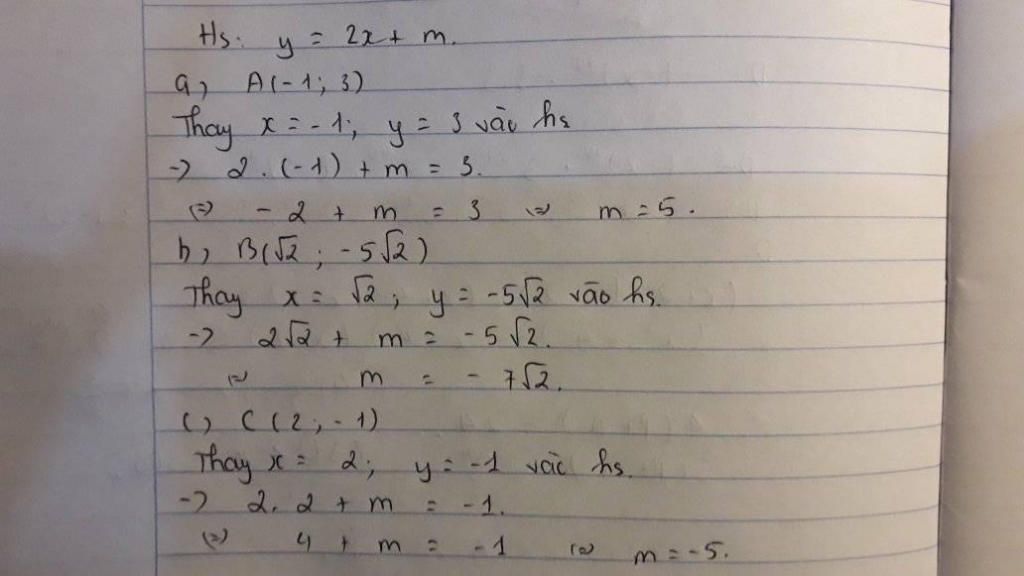 Hs: y = 2x + m.
a, A(-1; 3)
Thay x = -1; y = 3 vào hs
-> 2.(-1) + m = 3.
(=) - 2 + m = 3 (=) m = 5.
b, B(√2; -5√2)
Thay x = √2; y = -5√2 vào hs.
-> 2√2 + m = -5√2.
(=) m = - 7√2.
c, C(2; -1)
Thay x = 2; y = -1 vào hs.
-> 2.2 + m = -1.
(=) 4 + m = -1 (=) m = -5.